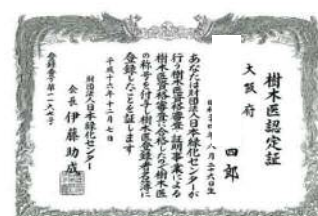 樹木医認定証
大阪府
四郎
八月二十六日生
あなたは財団法人日本緑化センターが
行う樹木医資格審査・証明事業による
樹木医資格審査に合格したので樹木医
の称号を付与し樹木医登録者名簿に
登録したことを証します
平成十六年十二月七日
財団法人日本緑化センター
会長 伊藤助成
登録番号第一一六七号